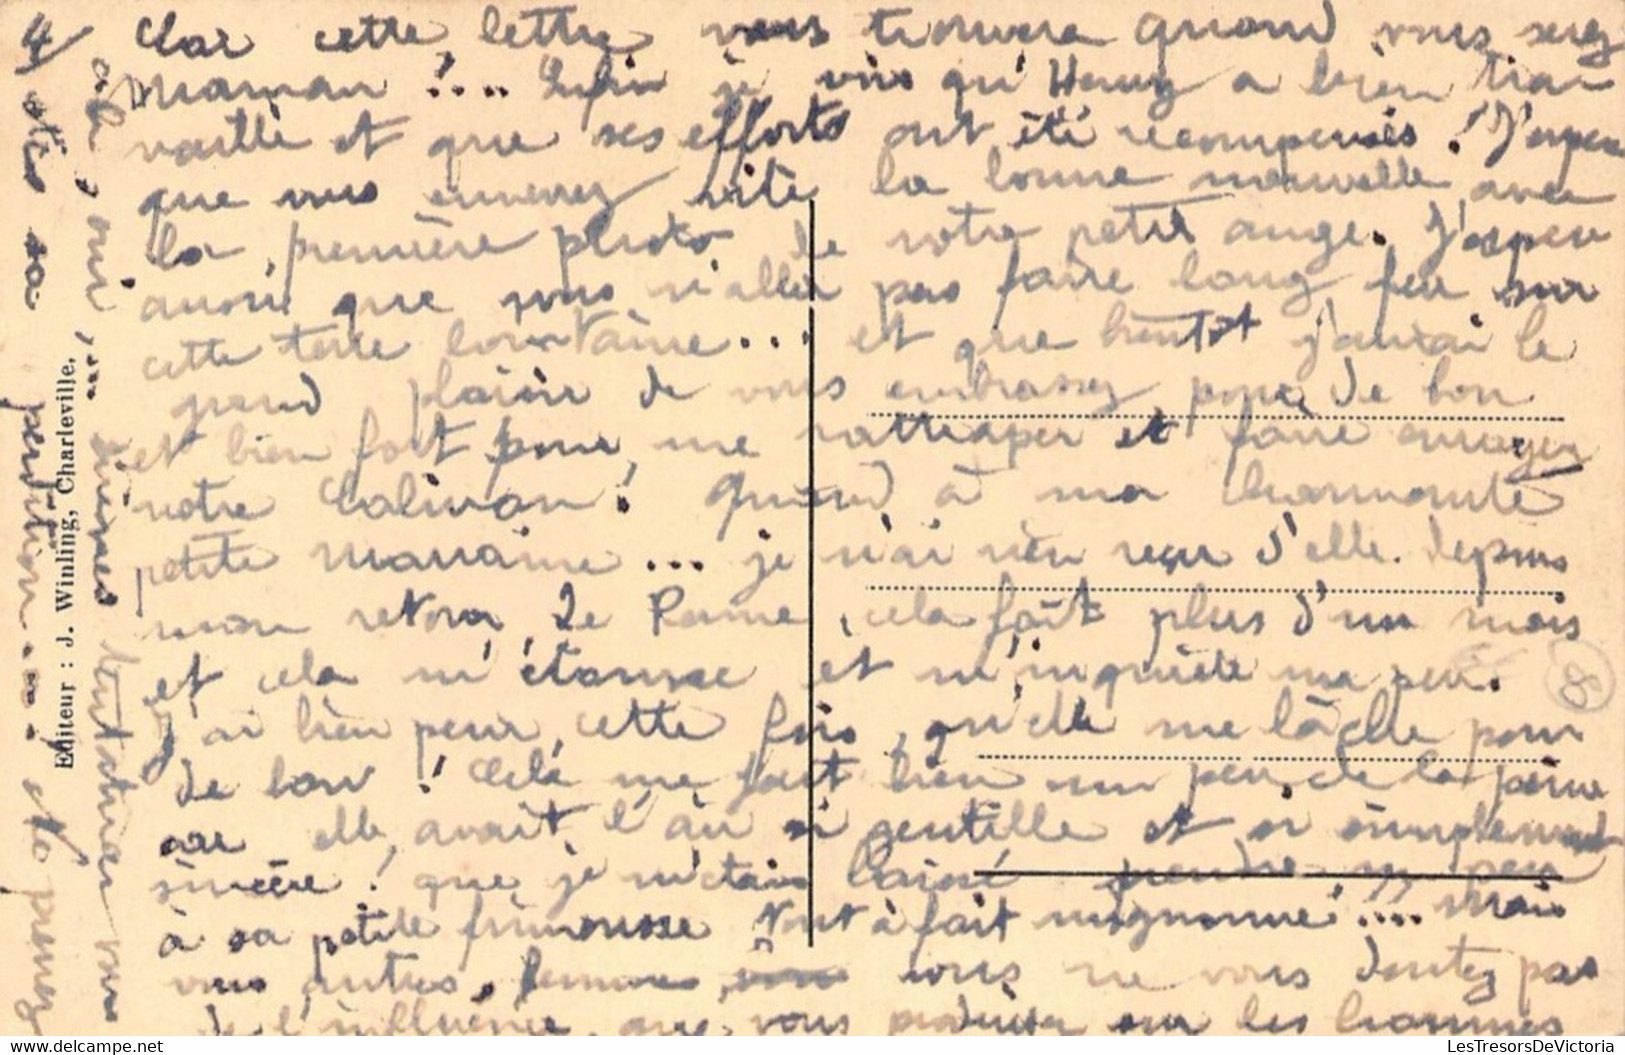 4/
Car cette lettre vous trouvera quand vous serez
maman !.... Enfin je vois qu'Henry a bien trav
vaillé et que ses efforts ont été récompensés ! J'espère
que vous enverrez vite la bonne nouvelle, avec
la première photo de votre petit ange. J'espère
aussi que vous n'allez pas faire long feu sur
cette terre lointaine... et que bientôt j'aurai le
grand plaisir de vous embrasser pour de bon
et bien fort pour me rattraper et faire enrager
votre Calinou ! Quand à ma charmante
petite marraine... je n'ai rien reçu d'elle depuis
mon retour de Rome, cela fait plus d'un mois
et cela m'étonne et m'inquiète un peu.
J'ai bien peur, cette fois, qu'elle me lâche pour
de bon ! Cela me fait bien un peu de la peine
car elle avait l'air si gentille et si simplement
sincère ! que je m'étais laissé prendre un peu
à sa petite frimousse tout à fait mignonne !.... Mais
vous autres, femmes vous ne vous doutez pas
de l'influence que vous produisez sur les hommes
ah, oui, ... diverses tentations vous
êtes sa perdition ... et le premier
Editeur : J. Winling, Charleville.
8
LesTresorsDeVictoria
www.delcampe.net